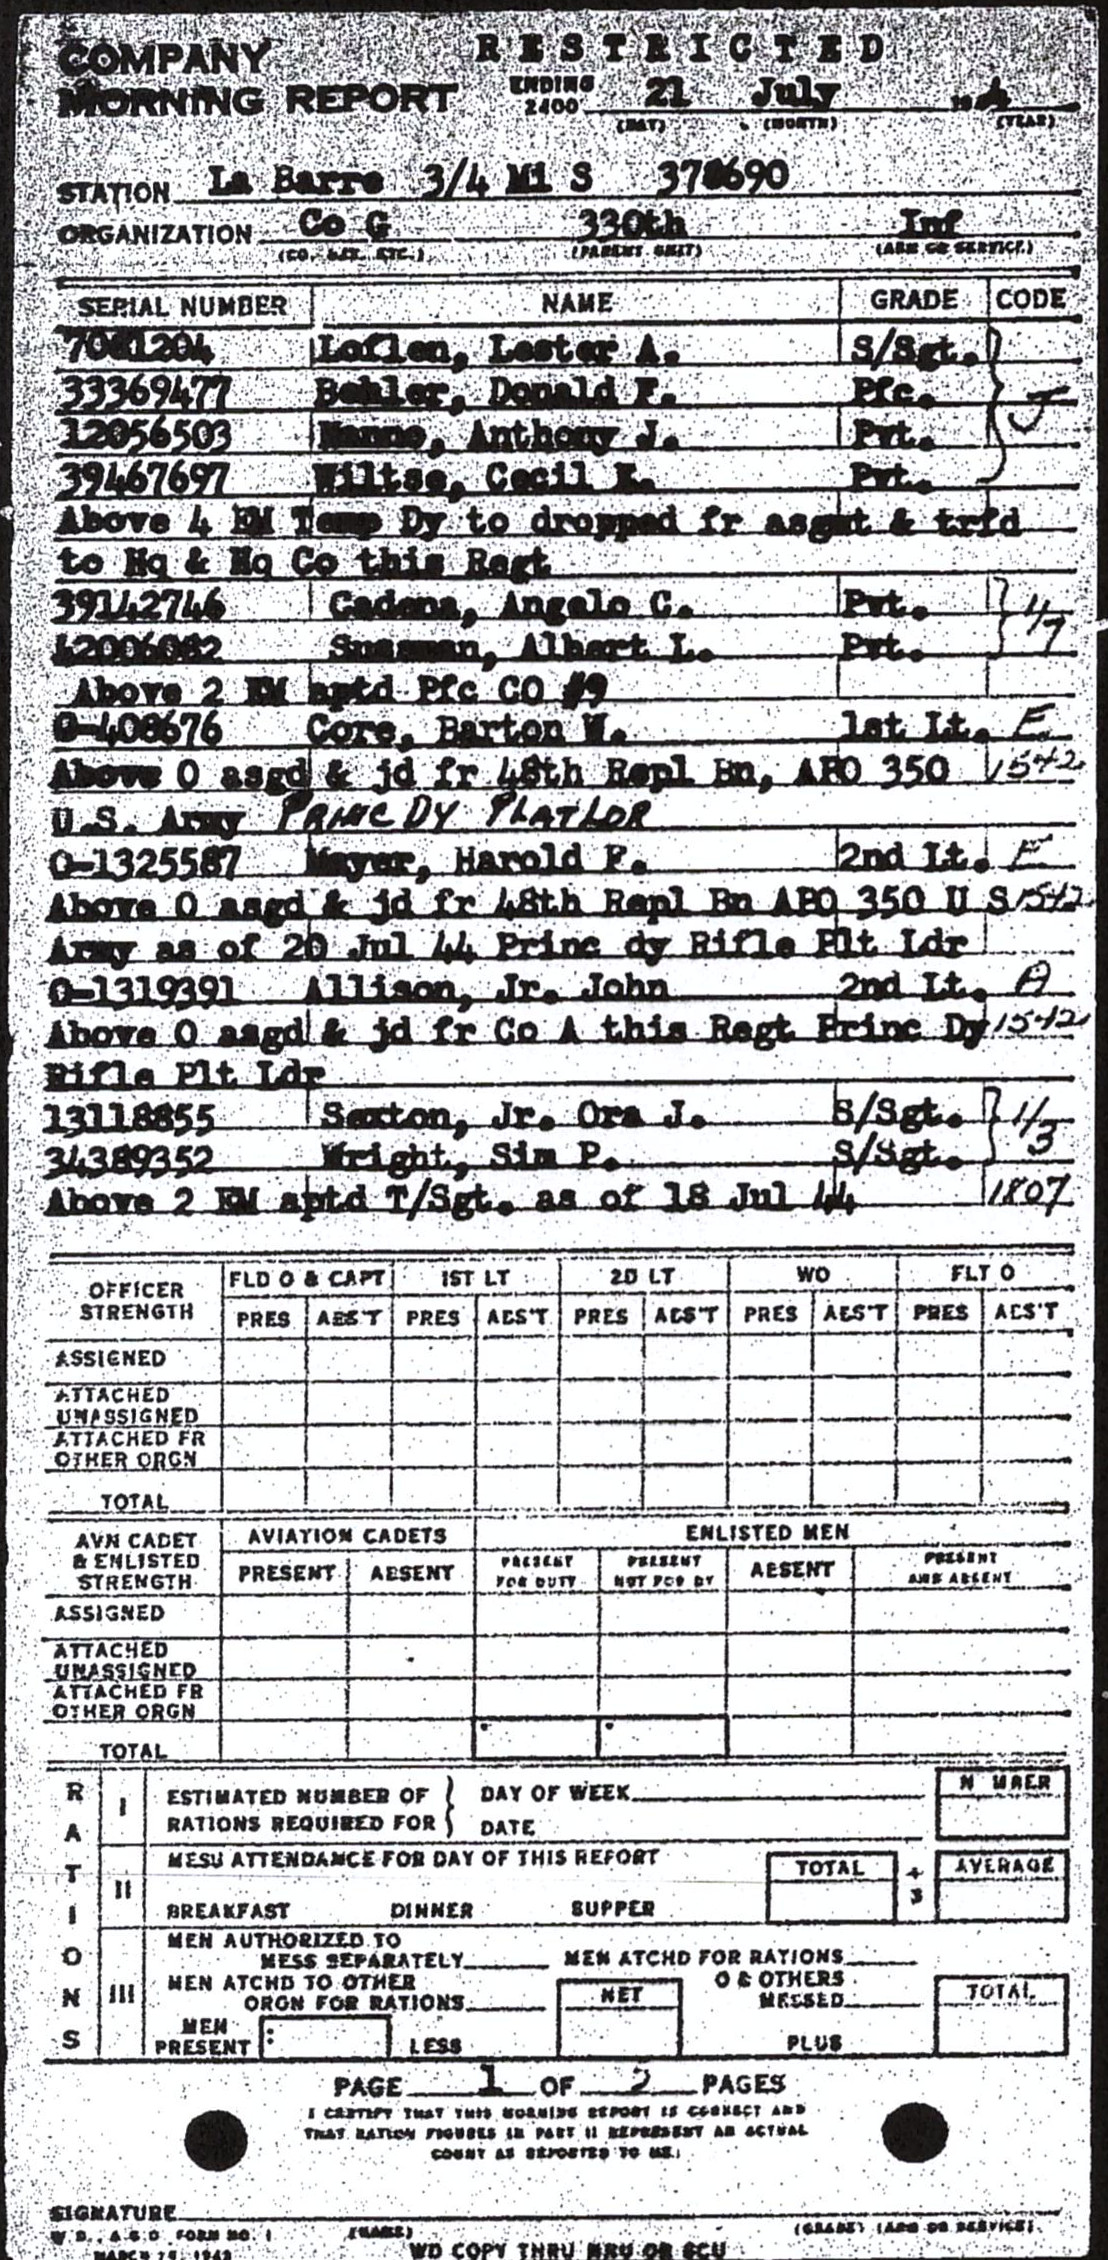 RESTRICTED
COMPANY
MORNING REPORT ENDING 2400 21 July 194
(DAY) (MONTH) (YEAR)
STATION La Barre 3/4 Mi S 378690
ORGANIZATION Co G 330th Inf
(CO. BAT. ETC.) (PARENT UNIT) (ARM OR SERVICE)
SERIAL NUMBER NAME GRADE CODE
7081204 Loflen, Lester A. S/Sgt.
33369477 Behler, Donald F. Pfc. J
12056503 Anthony J. Pvt.
39467697 Wiltse, Cecil K. Pvt.
Above 4 EM Temp Dy to dropped fr asgmt & trfd
to Hq & Hq Co this Regt
39142746 Cadena, Angelo C. Pvt. 1/7
42006082 Sussman, Albert L. Pvt.
Above 2 EM aptd Pfc CO #9
O-408676 Core, Barton W. 1st Lt. E
Above O asgd & jd fr 48th Repl Bn, APO 350 1542
U.S. Army PRINC DY PLATLDR
O-1325587 Mayer, Harold F. 2nd Lt. E
Above O asgd & jd fr 48th Repl Bn APO 350 U S 1542
Army as of 20 Jul 44 Princ dy Rifle Plt Ldr
O-1319391 Allison, Jr. John 2nd Lt. A
Above O asgd & jd fr Co A this Regt Princ Dy 1542
Rifle Plt Ldr
13118855 Sexton, Jr. Ora J. S/Sgt. 1/3
34389352 Wright, Sim P. S/Sgt.
Above 2 EM aptd T/Sgt. as of 18 Jul 44 1807
OFFICER STRENGTH FLD O & CAPT 1ST LT 2D LT WO FLT O
PRES ABS'T PRES ABS'T PRES ABS'T PRES ABS'T PRES ABS'T
ASSIGNED
ATTACHED
UNASSIGNED
ATTACHED FR
OTHER ORGN
TOTAL
AVN CADET & ENLISTED STRENGTH AVIATION CADETS ENLISTED MEN
PRESENT ABSENT PRESENT FOR DUTY PRESENT NOT FOR DY ABSENT PRESENT AND ABSENT
ASSIGNED
ATTACHED
UNASSIGNED
ATTACHED FR
OTHER ORGN
TOTAL
RATIONS
I ESTIMATED NUMBER OF DAY OF WEEK NUMBER
RATIONS REQUIRED FOR DATE
II MESS ATTENDANCE FOR DAY OF THIS REPORT TOTAL ÷ 3 AVERAGE
BREAKFAST DINNER SUPPER
III MEN AUTHORIZED TO
MESS SEPARATELY MEN ATCHD FOR RATIONS
MEN ATCHD TO OTHER O & OTHERS
ORGN FOR RATIONS NET MESSED TOTAL
MEN
PRESENT LESS PLUS
PAGE 1 OF 2 PAGES
I CERTIFY THAT THIS MORNING REPORT IS CORRECT AND
THAT RATION FIGURES IN PART II REPRESENT AN ACTUAL
COUNT AS REPORTED TO ME:
SIGNATURE
W.D., A.G.O. FORM NO. 1 (NAME) (GRADE) (ARM OR SERVICE)
MARCH 1943 WD COPY THRU MRU OR SCU